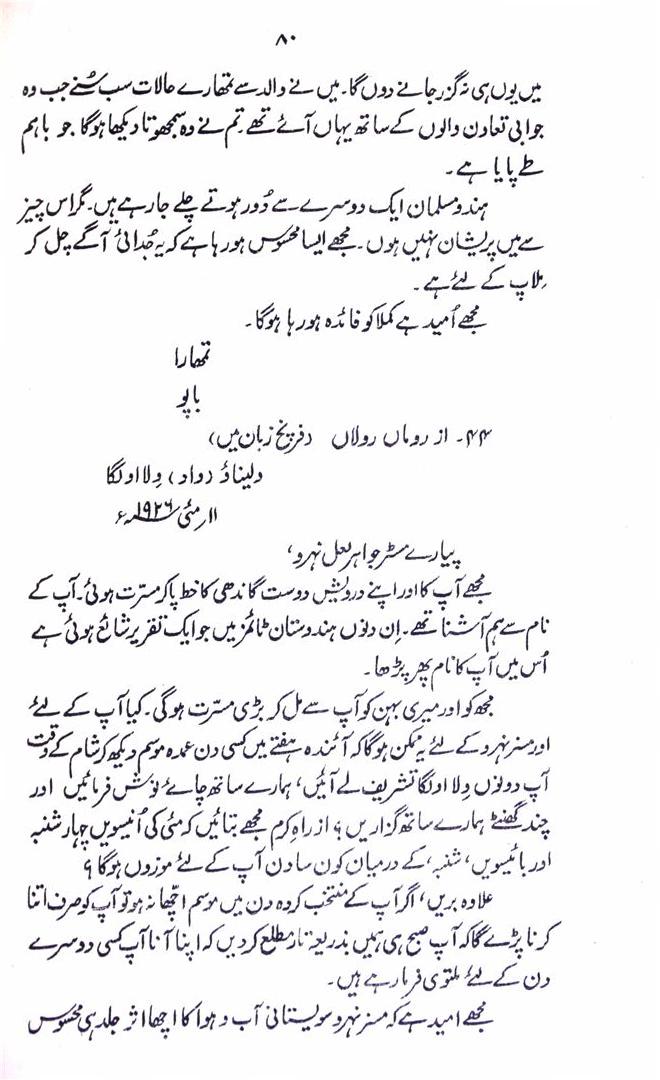 ۸۰
میں یوں ہی نہ گزر جانے دوں گا۔ میں نے والد سے تمھارے حالات سب سُنے جب وہ
جوابی تعاون والوں کے ساتھ یہاں آئے تھے۔ تم نے وہ سمجھوتا دیکھا ہوگا جو باہم
طے پایا ہے۔
ہندو مسلمان ایک دوسرے سے دُور ہوتے چلے جا رہے ہیں۔ مگر اس چیز
سے میں پریشان نہیں ہوں۔ مجھے ایسا محسوس ہو رہا ہے کہ یہ جُدائی آگے چل کر
مِلاپ کے لئے ہے۔
مجھے اُمید ہے کملا کو فائدہ ہو رہا ہوگا۔
تمھارا
باپو
۴۴۔ از روماں رولاں (فرینچ زبان میں)
ولیناؤ (واد) وِلا اولگا
۱۱؍ مئی ۱۹۲۶ء
پیارے مسٹر جواہر لعل نہرو،
مجھے آپ کا اور اپنے درویش دوست گاندھی کا خط پا کر مسرّت ہوئی۔ آپ کے
نام سے ہم آشنا تھے۔ اِن دنوں ہندوستان ٹائمز میں جو ایک تقریر شائع ہوئی ہے
اُس میں آپ کا نام پھر پڑھا۔
مجھ کو اور میری بہن کو آپ سے مل کر بڑی مسرّت ہوگی۔ کیا آپ کے لئے
اور مسز نہرو کے لئے یہ ممکن ہوگا کہ آئندہ ہفتے میں کسی دن عمدہ موسم دیکھ کر شام کے وقت
آپ دونوں وِلا اولگا تشریف لے آئیں، ہمارے ساتھ چائے نوش فرمائیں اور
چند گھنٹے ہمارے ساتھ گزاریں؟ از راہِ کرم مجھے بتائیں کہ مئی کی اُنیسویں چہار شنبہ
اور بائیسویں، شنبہ، کے درمیان کون سا دن آپ کے لئے موزوں ہوگا؟
علاوہ بریں، اگر آپ کے منتخب کردہ دن میں موسم اچّھا نہ ہو تو آپ کو صرف اتنا
کرنا پڑے گا کہ آپ صبح ہی ہمیں بذریعہ تار مطلع کر دیں کہ اپنا آنا آپ کسی دوسرے
دن کے لئے ملتوی فرما رہے ہیں۔
مجھے امید ہے کہ مسز نہرو سویستانی آب و ہوا کا اچھا اثر جلد ہی محسوس